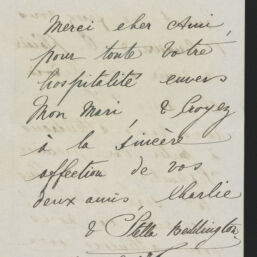 Merci cher Ami,
pour toute votre
hospitalité envers
Mon Mari, & Croyez
à la sincère
affection de vos
deux amis, Charlie
& Stella Beddington